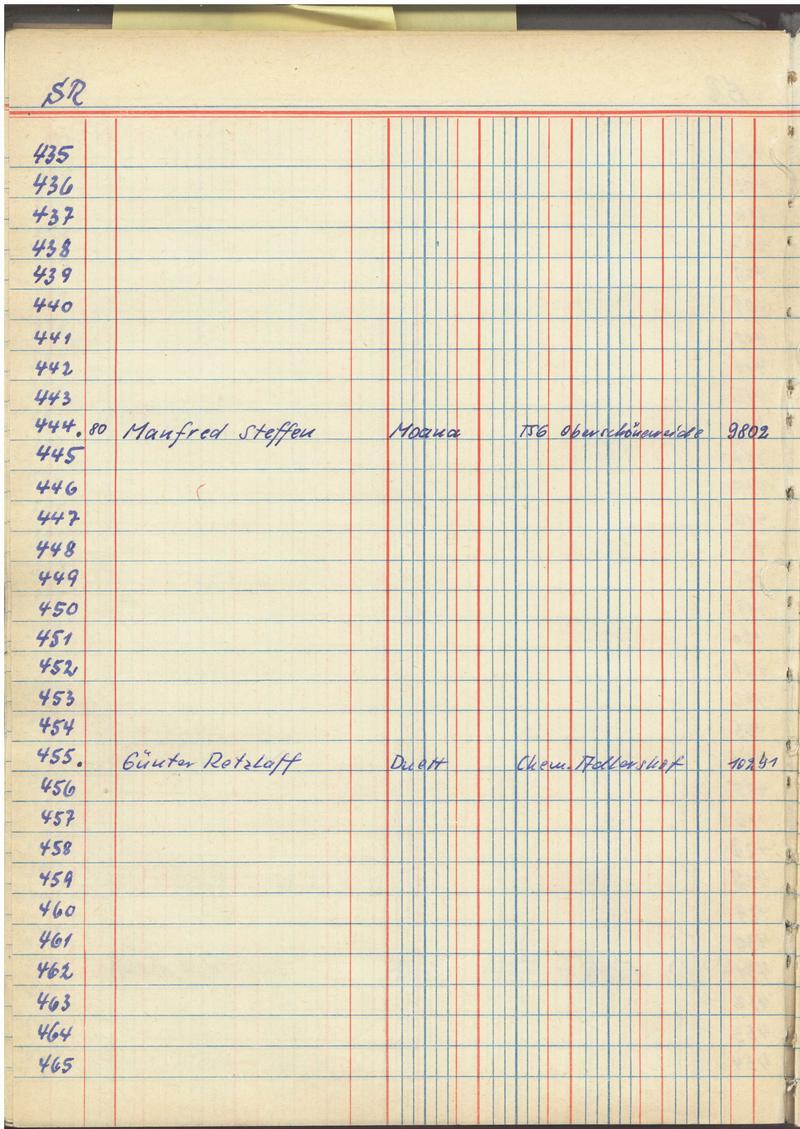 SR
435
436
437
438
439
440
441
442
443
444. 80 Manfred Steffen Moana TSG Oberschöneweide 9802
445
446
447
448
449
450
451
452
453
454
455. Günter Retzlaff Duett Chem. Adlershof
456
457
458
459
460
461
462
463
464
465